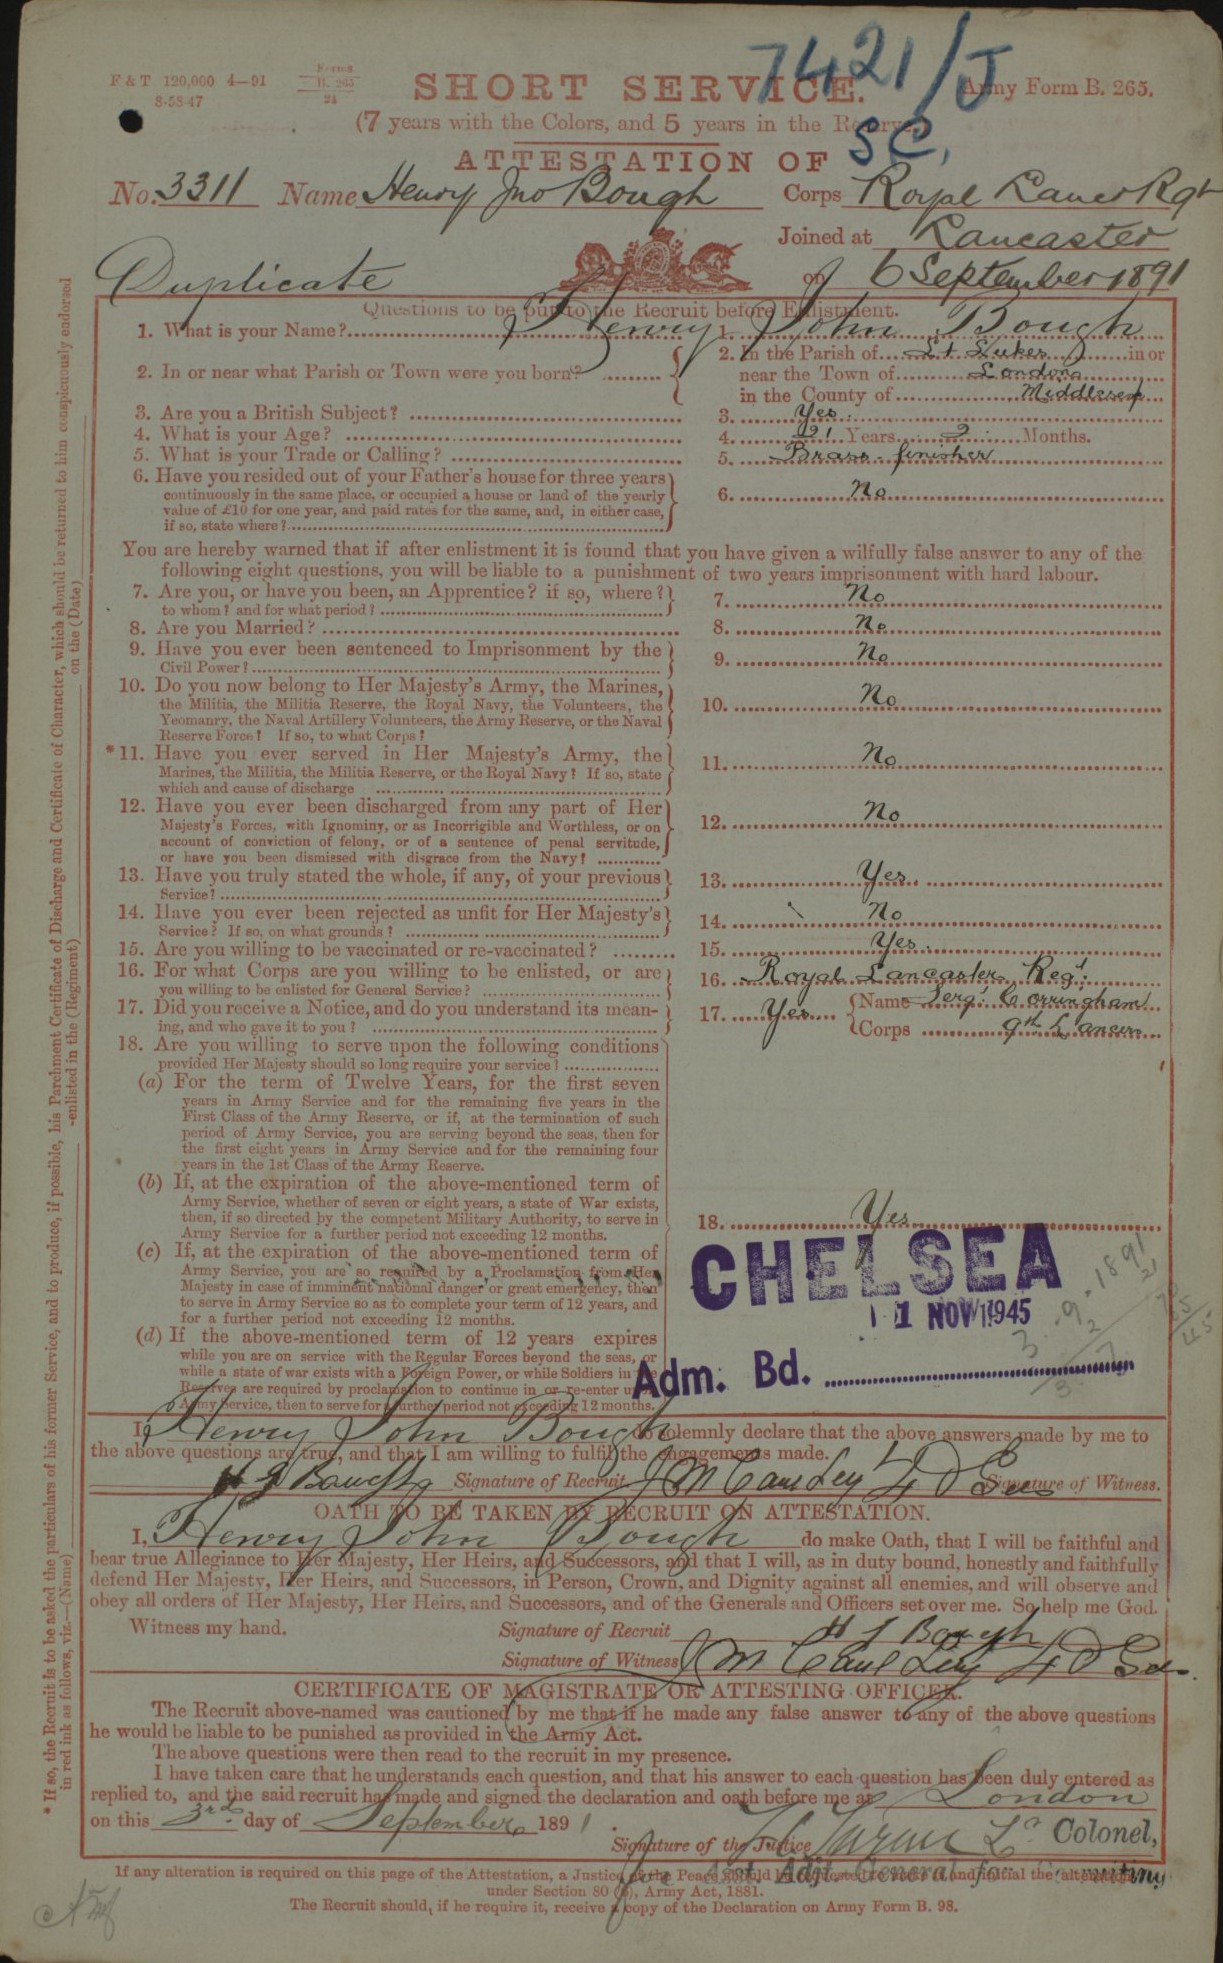 F & T 120,000 4—91
8-58 47
Forms
B. 265
24
SHORT SERVICE.
7421/J
Army Form B. 265.
(7 years with the Colors, and 5 years in the Reserve.)
S.C.
ATTESTATION OF
No. 3311 Name Henry Jno Bough Corps Royal Lancr Rgt
Joined at Lancaster
on 6 September 1891
Duplicate
Questions to be put to the Recruit before Enlistment.
1. What is your Name? 1. Henry John Bough
2. In or near what Parish or Town were you born? 2. In the Parish of St Lukes in or
near the Town of London
in the County of Middlesex
3. Are you a British Subject? 3. Yes.
4. What is your Age? 4. 21 Years 2 Months.
5. What is your Trade or Calling? 5. Brass-finisher
6. Have you resided out of your Father's house for three years
continuously in the same place, or occupied a house or land of the yearly
value of £10 for one year, and paid rates for the same, and, in either case,
if so, state where? 6. No
You are hereby warned that if after enlistment it is found that you have given a wilfully false answer to any of the
following eight questions, you will be liable to a punishment of two years imprisonment with hard labour.
7. Are you, or have you been, an Apprentice? if so, where?
to whom? and for what period? 7. No
8. Are you Married? 8. No
9. Have you ever been sentenced to Imprisonment by the
Civil Power? 9. No
10. Do you now belong to Her Majesty's Army, the Marines,
the Militia, the Militia Reserve, the Royal Navy, the Volunteers, the
Yeomanry, the Naval Artillery Volunteers, the Army Reserve, or the Naval
Reserve Force? If so, to what Corps? 10. No
*11. Have you ever served in Her Majesty's Army, the
Marines, the Militia, the Militia Reserve, or the Royal Navy? If so, state
which and cause of discharge 11. No
12. Have you ever been discharged from any part of Her
Majesty's Forces, with Ignominy, or as Incorrigible and Worthless, or on
account of conviction of felony, or of a sentence of penal servitude,
or have you been dismissed with disgrace from the Navy? 12. No
13. Have you truly stated the whole, if any, of your previous
Service? 13. Yes.
14. Have you ever been rejected as unfit for Her Majesty's
Service? If so, on what grounds? 14. No
15. Are you willing to be vaccinated or re-vaccinated? 15. Yes.
16. For what Corps are you willing to be enlisted, or are
you willing to be enlisted for General Service? 16. Royal Lancaster Regt.
17. Did you receive a Notice, and do you understand its mean-
ing, and who gave it to you? 17. Yes Name Sergt. Corringham
Corps 9th Lancers
18. Are you willing to serve upon the following conditions
provided Her Majesty should so long require your service?
(a) For the term of Twelve Years, for the first seven
years in Army Service and for the remaining five years in the
First Class of the Army Reserve, or if, at the termination of such
period of Army Service, you are serving beyond the seas, then for
the first eight years in Army Service and for the remaining four
years in the 1st Class of the Army Reserve.
(b) If, at the expiration of the above-mentioned term of
Army Service, whether of seven or eight years, a state of War exists,
then, if so directed by the competent Military Authority, to serve in
Army Service for a further period not exceeding 12 months.
18. Yes
(c) If, at the expiration of the above-mentioned term of
Army Service, you are so required by a Proclamation from Her
Majesty in case of imminent national danger or great emergency, then
to serve in Army Service so as to complete your term of 12 years, and
for a further period not exceeding 12 months.
(d) If the above-mentioned term of 12 years expires
while you are on service with the Regular Forces beyond the seas, or
while a state of war exists with a Foreign Power, or while Soldiers in the
Reserve are required by proclamation to continue in or re-enter upon
Army Service, then to serve for a further period not exceeding 12 months.
CHELSEA
1 NOV 1945
Adm. Bd.
3.9.1891
I, Henry John Bough do solemnly declare that the above answers made by me to
the above questions are true, and that I am willing to fulfil the engagements made.
H J Bough Signature of Recruit Signature of Witness.
OATH TO BE TAKEN BY RECRUIT ON ATTESTATION.
I, Henry John Bough do make Oath, that I will be faithful and
bear true Allegiance to Her Majesty, Her Heirs, and Successors, and that I will, as in duty bound, honestly and faithfully
defend Her Majesty, Her Heirs, and Successors, in Person, Crown, and Dignity against all enemies, and will observe and
obey all orders of Her Majesty, Her Heirs, and Successors, and of the Generals and Officers set over me. So help me God.
Witness my hand. Signature of Recruit H J Bough
Signature of Witness
CERTIFICATE OF MAGISTRATE OR ATTESTING OFFICER.
The Recruit above-named was cautioned by me that if he made any false answer to any of the above questions
he would be liable to be punished as provided in the Army Act.
The above questions were then read to the recruit in my presence.
I have taken care that he understands each question, and that his answer to each question has been duly entered as
replied to, and the said recruit has made and signed the declaration and oath before me at London
on this 3rd day of September 1891.
Signature of the Justice Colonel,
for Asst. Adjt. General for Recruiting
If any alteration is required on this page of the Attestation, a Justice of the Peace should be requested to make it and initial the alteration
under Section 80 (6), Army Act, 1881.
The Recruit should, if he require it, receive a copy of the Declaration on Army Form B. 98.
* If so, the Recruit is to be asked the particulars of his former Service, and to produce, if possible, his Parchment Certificate of Discharge and Certificate of Character, which should be returned to him conspicuously endorsed
in red ink as follows, viz.—(Name) -enlisted in the (Regiment) on the (Date)